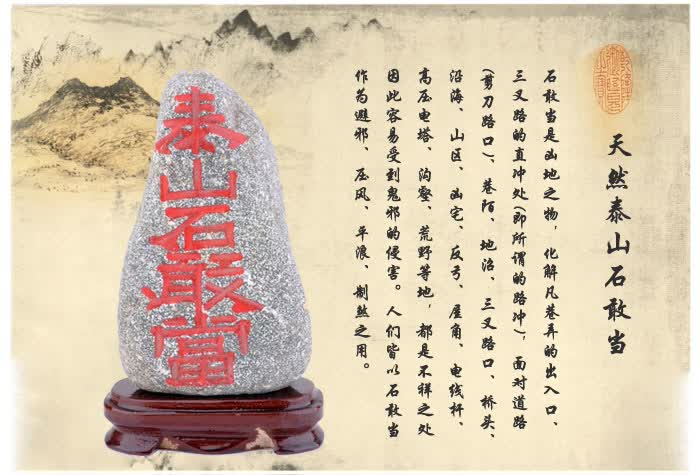 天然泰山石敢当
石敢当是凶地之物，化解凡巷弄的出入口、
三叉路的直冲处(即所谓的路冲)，面对道路
(剪刀路口)、巷陌、地沿、三叉路口、桥头、
沿海、山区、凶宅、反弓、屋角、电线杆、
高压电塔、沟壑、荒野等地，都是不祥之处
因此容易受到鬼邪的侵害。人们皆以石敢当
作为避邪、压风、平浪、制煞之用。
泰山石敢當